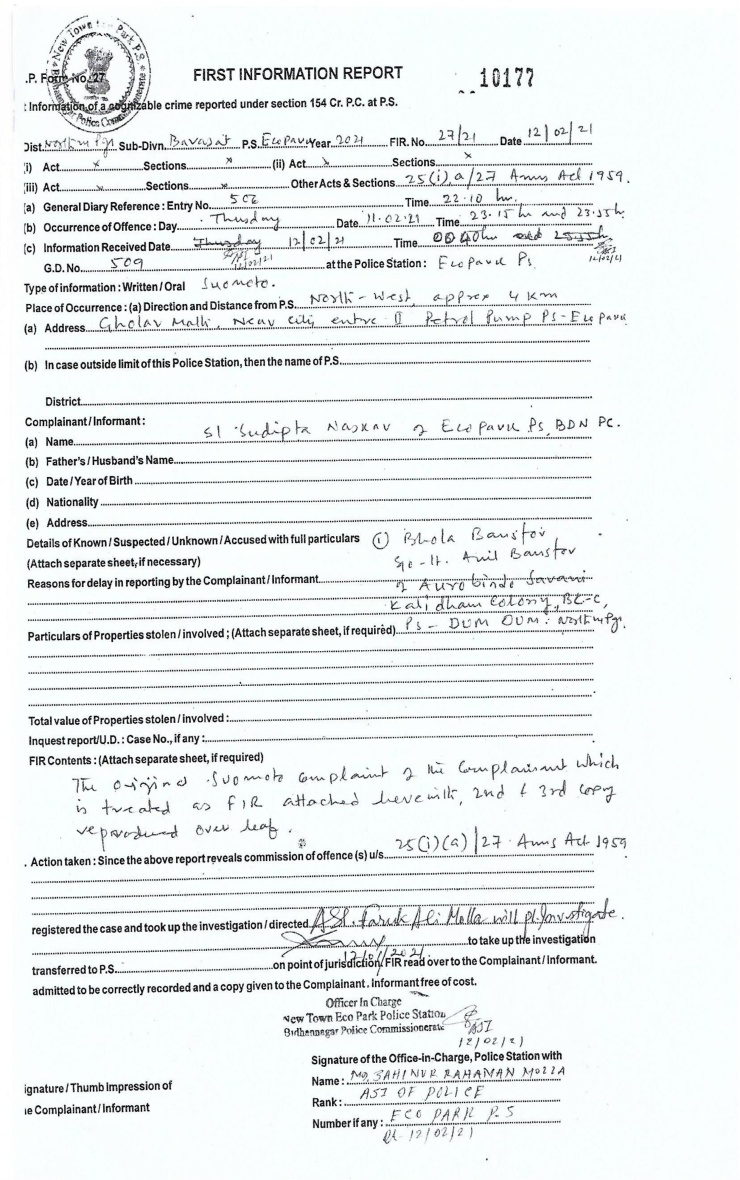 New Town Eco Park P.S.
Bidhannagar Police Commissionerate
.P. Form No. 27
FIRST INFORMATION REPORT
10177
: Information of a cognizable crime reported under section 154 Cr. P.C. at P.S.
Dist. North Pgs Sub-Divn. Barasat P.S. Eco Park Year 2021 FIR. No. 27/21 Date 12/02/21
(i) Act x Sections x (ii) Act x Sections x
(iii) Act x Sections x Other Acts & Sections 25(i),a/27 Arms Act 1959.
(a) General Diary Reference : Entry No. 502 Time 22.10 hr.
(b) Occurrence of Offence : Day Thusday Date 11.02.21 Time 23.15 hr and 23.55 h.
(c) Information Received Date Thusday 12/02/21 Time 00 40 hr
ASI 12/02/21
12/02/21
G.D. No. 509 at the Police Station : Eco Park Ps.
Type of information : Written / Oral Suomoto.
Place of Occurrence : (a) Direction and Distance from P.S. North - West, approx 4 km
(a) Address Near City entre II Petrol Pump PS - Eco Park
(b) In case outside limit of this Police Station, then the name of P.S.
District
Complainant / Informant :
(a) Name SI Sudipta Naskar of Eco Park Ps, BDN PC.
(b) Father's / Husband's Name
(c) Date / Year of Birth
(d) Nationality
(e) Address
Details of Known / Suspected / Unknown / Accused with full particulars (i) Bhola Bansfor,
(Attach separate sheet, if necessary) S/o - Lt. Anil Bansfor
Reasons for delay in reporting by the Complainant / Informant of Aurobindo Sarani
Kalidham Colony, BL-C,
Particulars of Properties stolen / involved ; (Attach separate sheet, if required) Ps - DUM DUM : North Pgs.
Total value of Properties stolen / involved :
Inquest report/U.D. : Case No., if any :
FIR Contents : (Attach separate sheet, if required)
The original Suomoto Complaint of the Complainant which
is treated as FIR attached herewith, 2nd & 3rd copy
reproduced over leaf.
. Action taken : Since the above report reveals commission of offence (s) u/s. 25(i)(a)/27 Arms Act 1959
registered the case and took up the investigation / directed ASI. Faruk Ali Molla will pl. Investigate.
to take up the investigation
12/02/2021
transferred to P.S. on point of jurisdiction/FIR read over to the Complainant / Informant.
admitted to be correctly recorded and a copy given to the Complainant . Informant free of cost.
Officer In Charge
New Town Eco Park Police Station
Bidhannagar Police Commissionerate
ASI
12/02/21
Signature of the Office-in-Charge, Police Station with
Name : MD. SAHINUR RAHAMAN MOLLA
ignature / Thumb Impression of
Rank : ASI OF POLICE
e Complainant / Informant
Number if any : ECO PARK P.S
Dt- 12/02/21